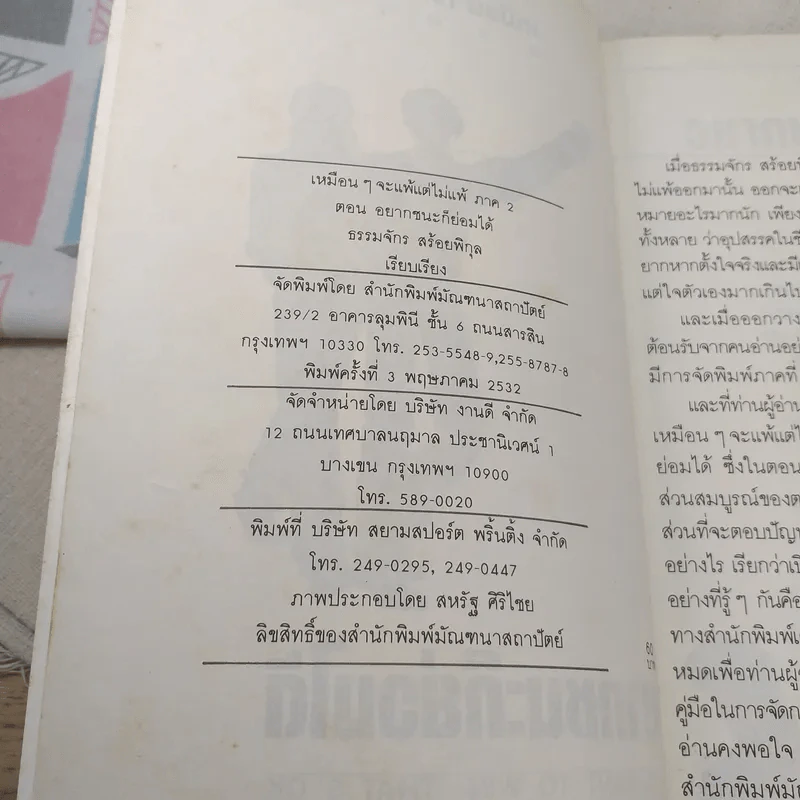 เหมือน ๆ จะแพ้แต่ไม่แพ้ ภาค 2
ตอน อยากชนะก็ย่อมได้
ธรรมจักร สร้อยพิกุล
เรียบเรียง
จัดพิมพ์โดย สำนักพิมพ์มัณฑนาสถาปัตย์
239/2 อาคารลุมพินี ชั้น 6 ถนนสารสิน
กรุงเทพฯ 10330 โทร. 253-5548-9,255-8787-8
พิมพ์ครั้งที่ 3 พฤษภาคม 2532
จัดจำหน่ายโดย บริษัท งานดี จำกัด
12 ถนนเทศบาลนฤมาล ประชานิเวศน์ 1
บางเขน กรุงเทพฯ 10900
โทร. 589-0020
พิมพ์ที่ บริษัท สยามสปอร์ต พริ้นติ้ง จำกัด
โทร. 249-0295, 249-0447
ภาพประกอบโดย สหรัฐ ศิริไชย
ลิขสิทธิ์ของสำนักพิมพ์มัณฑนาสถาปัตย์
60
บาท
เมื่อธรรมจักร
ไม่แพ้ออกมานั้น
หมายอะไรมากนัก
ทั้งหลาย ว่าอุปสรรคใน
ยากหากตั้งใจจริงและ
แต่ใจตัวเองมากเกิน
และเมื่อออกวาง
ต้อนรับจากคนอ่าน
มีการจัดพิมพ์ภาคที่
และที่ท่านผู้อ่าน
เหมือน ๆ จะแพ้แต่
ย่อมได้ ซึ่งในตอน
ส่วนสมบูรณ์ของ
ส่วนที่จะตอบ
อย่างไร เรียกว่า
อย่างที่รู้ ๆ กันคือ
ทางสำนักพิมพ์
หมดเพื่อท่าน
คู่มือในการจัด
อ่านคงพอใจ
สำนักพิมพ์